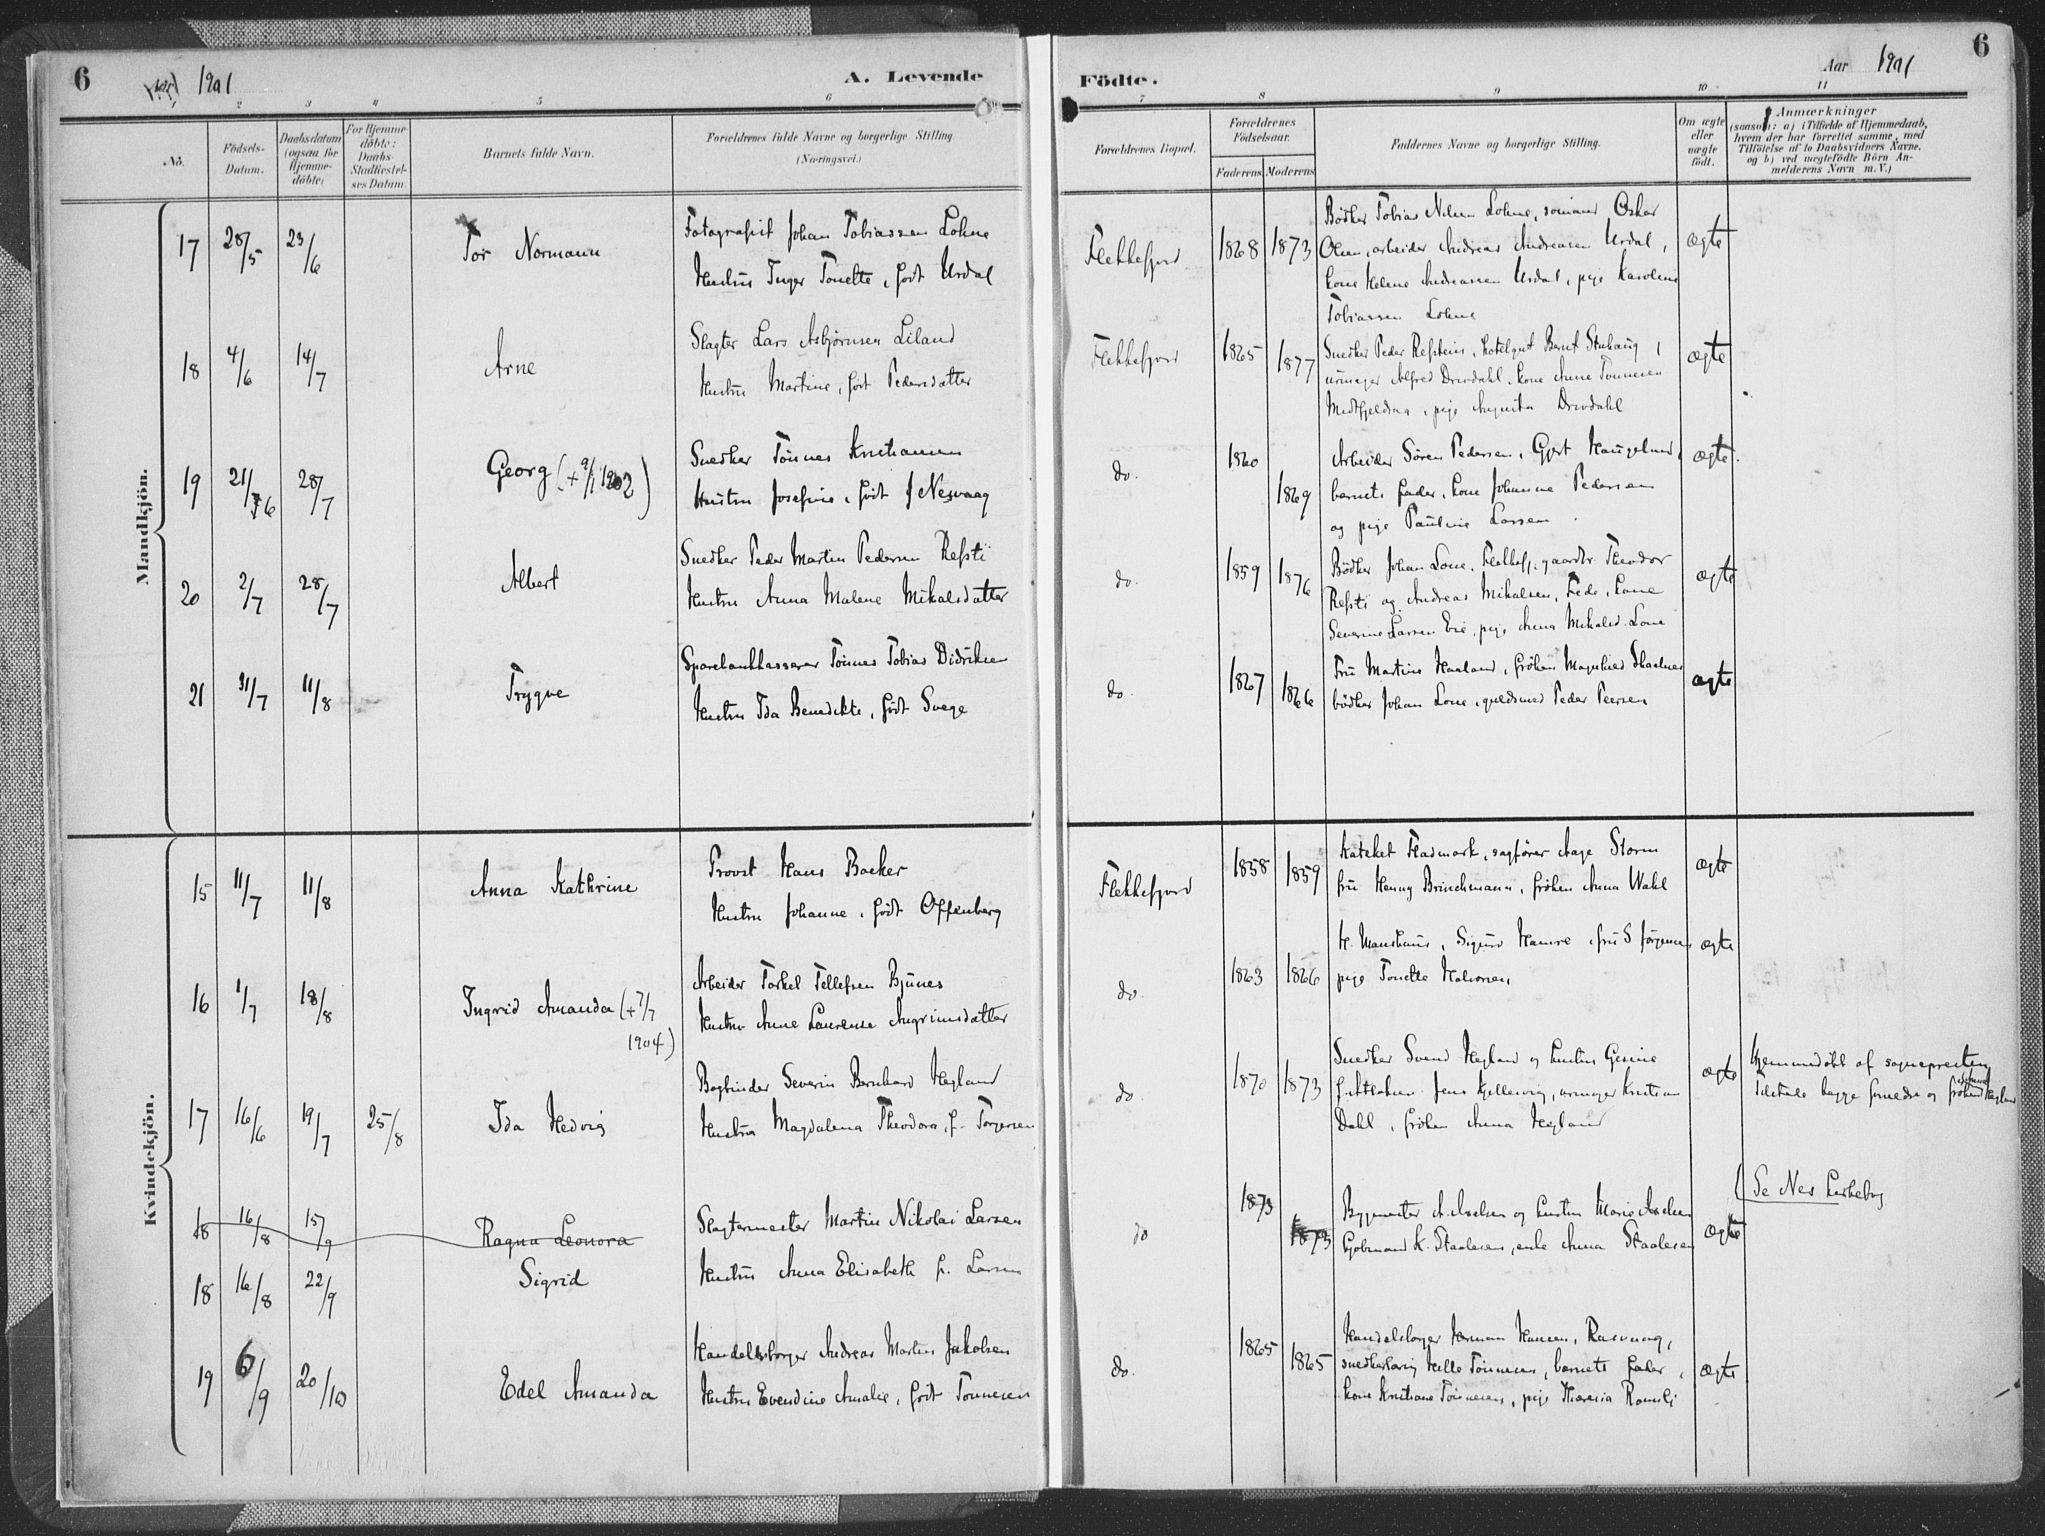 6 1901 A. Levende Födte. Aar 1901 6
2 3 4 5 6 7 8 9 10 11
No.
Födsels-Datum.
Daabsdatum (ogsaa for Hjemme-döbte)
For Hjemme-döbte: Daabs-Stadfæstel-ses Datum
Barnets fulde Navn.
Forældrenes fulde Navne og borgerlige Stilling.
(Næringsvei.)
Forældrenes Bopæl.
Forældrenes Födselsaar.
Faderens Moderens
Faddernes Navne og borgerlige Stilling.
Om ægte eller uægte födt.
Anmærkninger
(saasom: a) i Tilfælde af Hjemmedaab,
hvem der har forrettet samme, med
Tilföielse af to Daabsvidners Navne.
og b) ved uægtefödte Börn An-
melderens Navn m.V.)
Mandkjön.
17 28/5 23/6 Tor Normann
Fotografist Johan Tobiassen Lohne
Hustru Inger Tonette, født Urdal
Flekkefjord 1868 1873
Bødker Tobias Nilsen Lohne, sømand Oskar
Olsen, arbeider Andreas Andreasen Urdal,
kone Helene Andreassen Urdal, pige Karoline
Tobiassen Lohne
ægte
18 4/6 14/7 Arne
Slagter Lars Asbjørnsen Liland
Hustru Martine, født Pedersdatter
Flekkefjord 1865 1877
Snedker Peder Refstein, hotelgut Bernt Stuhaug,
urmager Alfred Drivdahl, kone Anne Tønnesen
pige Augusta Drivdahl
ægte
19 21/6 28/7 Georg (+ 9/1 1902)
Snedker Tønnes Kristiansen
Hustru Josefine, født Nesvaag
do. 1860 1869
Arbeider Sören Pedersen, Gyert Haugelund,
barnets fader, kone Johanne Pedersen
og pige Pauline Larsen.
ægte.
20 2/7 28/7 Albert
Snedker Peder Martin Pedersen Refsti
Hustru Anna Malene Mikalsdatter
do. 1859 1876
Bødker Johan Lone, Flekkefj. gaardbr. Theodor
Refsti og Andreas Mikalsen, Fede, kone
Severine Larsen Eie, pige Anna Mikalsd. Lone
ægte
21 31/7 11/8 Trygve
Sparebankkasserer Tönnes Tobias Didriksen
Hustru Ida Benedikte, født Svege
do. 1867 1866
Fru Martine Haaland, frøken Magnhild
bødker Johan Lone, guldsmed Peder Peersen
ægte
Kvindekjön.
15 11/7 11/8 Anna Kathrine
Provst Hans Backer
Hustru Johanne, født Offenberg
Flekkefjord 1858 1859
Kateket Hadmark, sagfører Aage Storm
fru Henny Brinchmann, frøken Anna Wahl
ægte
16 1/7 18/8 Ingrid Amanda (+ 7/7
1904)
Arbeider Torkel Tellefsen Bjunes
Hustru Anne Laurense Angrimsdatter
do. 1863 1866
H. Monshaus, Sigurd Hamre, fru S. Jørgensen
pige Tonette Halvorsen
ægte
17 16/6 19/7 25/8 Ida Hedvig
Bogbinder Severin Bernhard Hegland
Hustru Magdalena Theodora, f. Torgersen
do. 1870 1873
Snedker Svend Hegland og hustru Gesine
Jens Kjellevig, urmager Kristian
Dahl, frøken Anna Hegland
ægte
Hjemmedøbt af sognepresten
Tilstede begge forældre og frøken Hegland
18 16/8 15/9 Ragna Leonora
18 16/8 22/9 Sigrid
Slagtermester Martin Nikolai Larsen
Hustru Anna Elisabeth f. Larsen
do 1873 1873
Bygmester A. Axelsen og hustru Marie Axelsen
Kjøbmand K. Staalesen, enke Anna Staalesen
ægte
(Se Nes kirkebog
19 6/9 20/10 Edel Amanda
Handelsborger Andreas Martin Jakobsen
Hustru Evendine Amalie, født Tønnesen
do. 1865 1865
Handelsborger Herman Hansen, Rasvaag,
snedkerlærling Helle Tönnesen, barnets fader,
kone Kristiane Tönnesen, pige Theresia Romsli
ægte